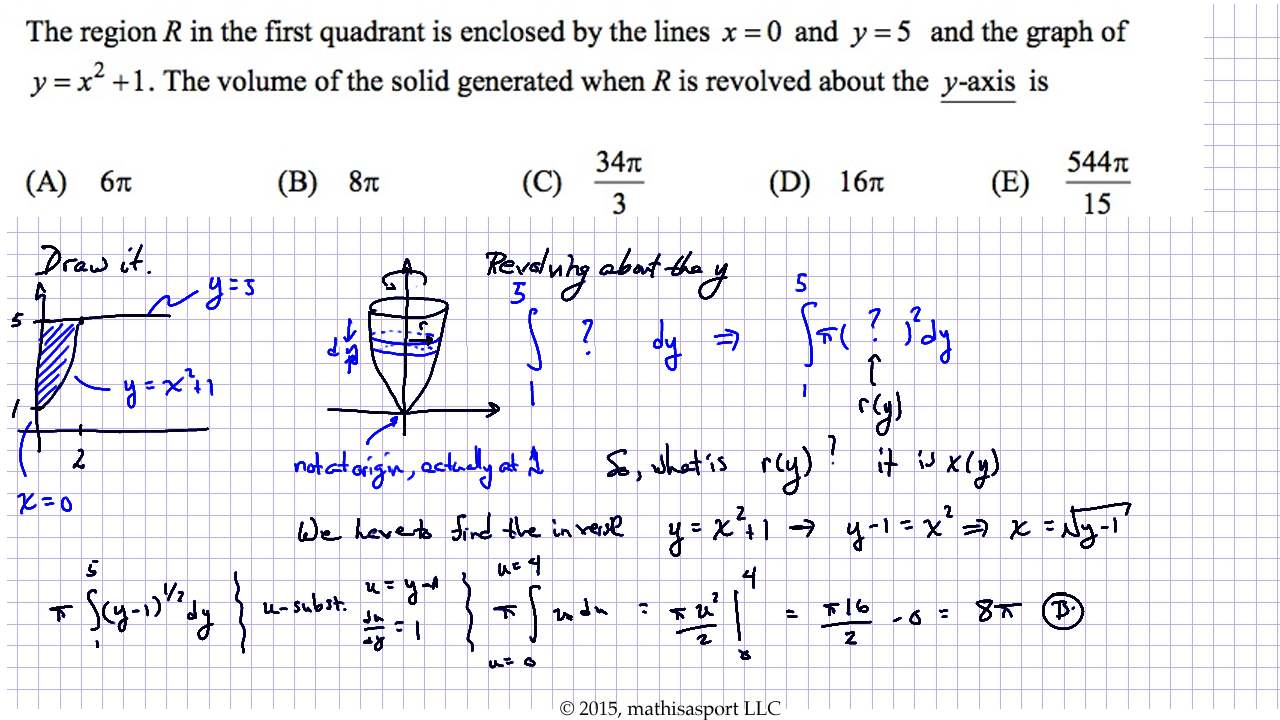 The region R in the first quadrant is enclosed by the lines x = 0 and y = 5 and the graph of
y = x² + 1. The volume of the solid generated when R is revolved about the y-axis is
(A) 6π (B) 8π (C) 34π/3 (D) 16π (E) 544π/15
Draw it.
y = 5
5
y = x² + 1
1
2
x = 0
r
dy
not at origin, actually at 1
Revolving about the y
∫₁⁵ ? dy ⇒ ∫₁⁵ π( ? )² dy
r(y)
So, what is r(y)? it is x(y)
We have to find the inverse y = x² + 1 → y - 1 = x² ⇒ x = √(y-1)
π ∫₁⁵ (y-1)^1/2 dy } u-subst. u = y-1 du/dy = 1 } π ∫ u=0 u=4 u du = πu²/2 |₀⁴ = π16/2 - 0 = 8π (B.)
© 2015, mathisasport LLC